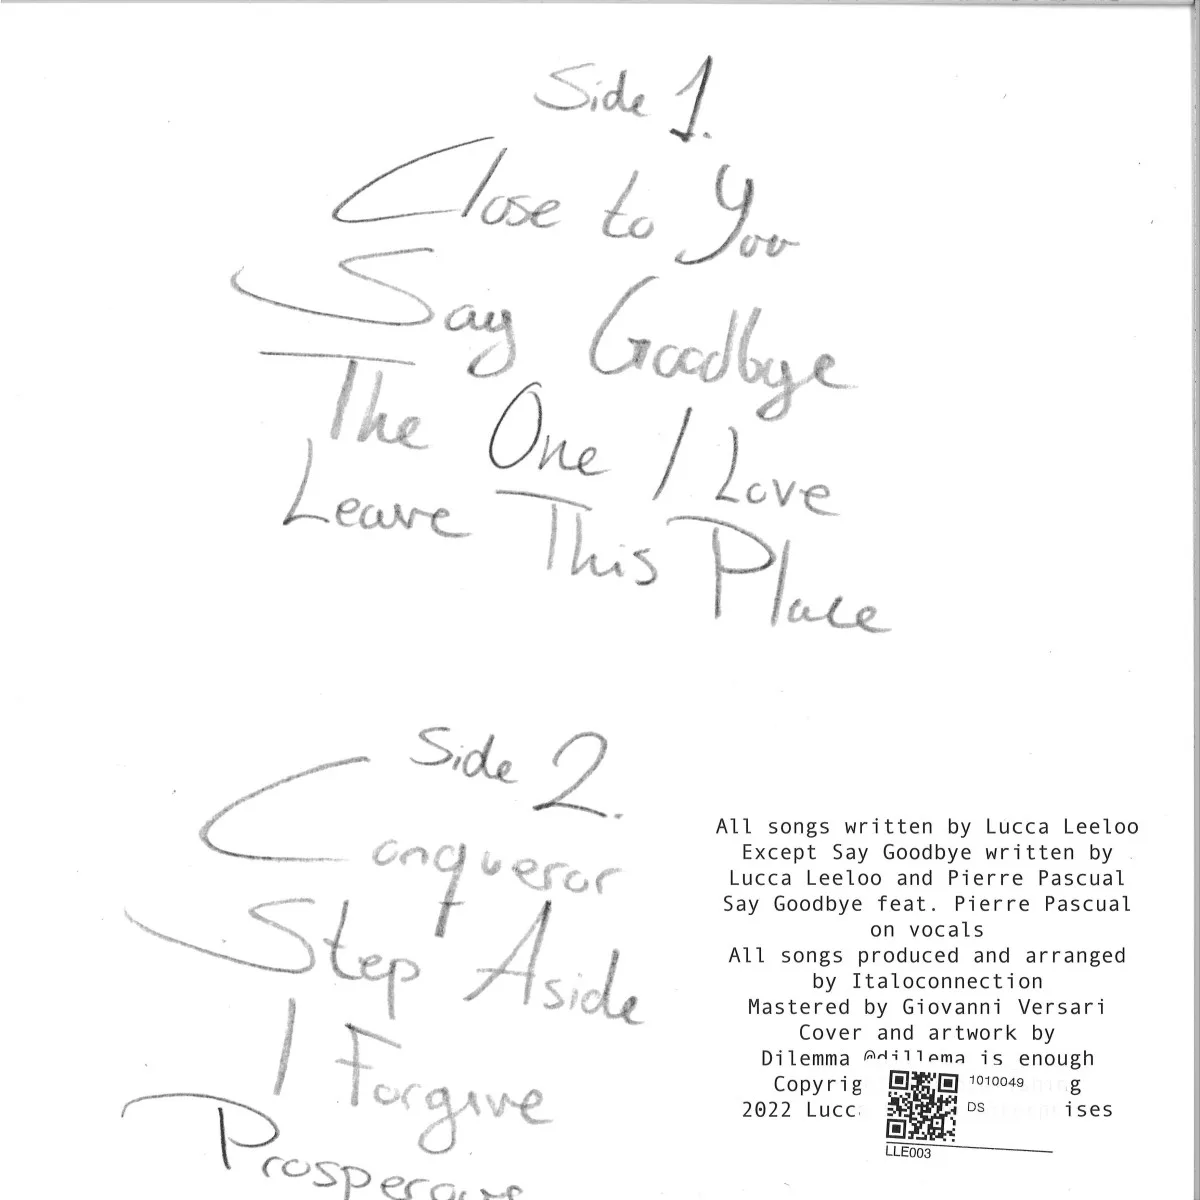 Side 1.
Close to You
Say Goodbye
The One I Love
Leave This Place
Side 2.
Conqueror
Step Aside
I Forgive
All songs written by Lucca Leeloo
Except Say Goodbye written by
Lucca Leeloo and Pierre Pascual
Say Goodbye feat. Pierre Pascual
on vocals
All songs produced and arranged
by Italoconnection
Mastered by Giovanni Versari
Cover and artwork by
Dilemma @dillema is enough
2022
1010049
DS
LLE003